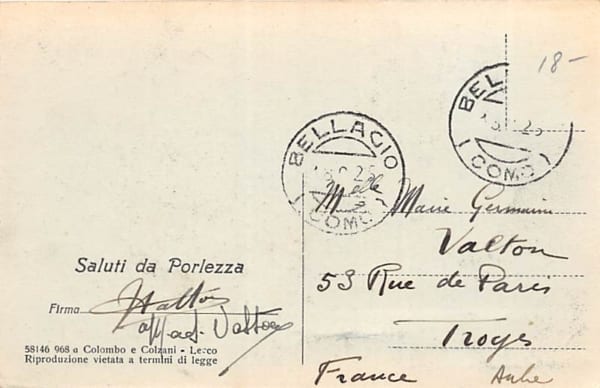 18-
BELLAGIO
(COMO)
BELL
25
(COMO)
Melle Marie Germaine
Valton
53 Rue de Paris
Troyes
France Aube
Saluti da Porlezza
Firma Valton
Valton
58146 968 a Colombo e Colzani - Lecco
Riproduzione vietata a termini di legge